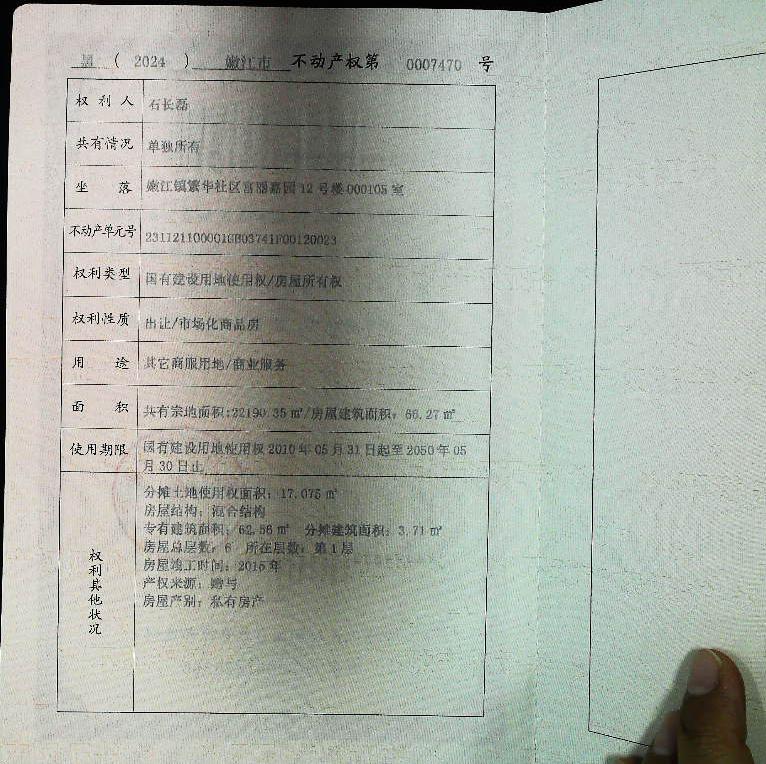 黑 ( 2024 ) 嫩江市 不动产权第 0007470 号
权利人 石长磊
共有情况 单独所有
坐落 嫩江镇繁华社区富器嘉园12号楼000105室
不动产单元号 231121100001GB03741F00120023
权利类型 国有建设用地使用权/房屋所有权
权利性质 出让/市场化商品房
用途 其它商服用地/商业服务
面积 共有宗地面积:22190.35㎡/房屋建筑面积:66.27㎡
使用期限 国有建设用地使用权2010年05月31日起至2050年05
月30日止
权利其他状况
分摊土地使用权面积:17.075㎡
房屋结构:混合结构
专有建筑面积:62.56㎡ 分摊建筑面积:3.71㎡
房屋总层数:6 所在层数:第1层
房屋竣工时间:2015年
产权来源:赠与
房屋产别:私有房产